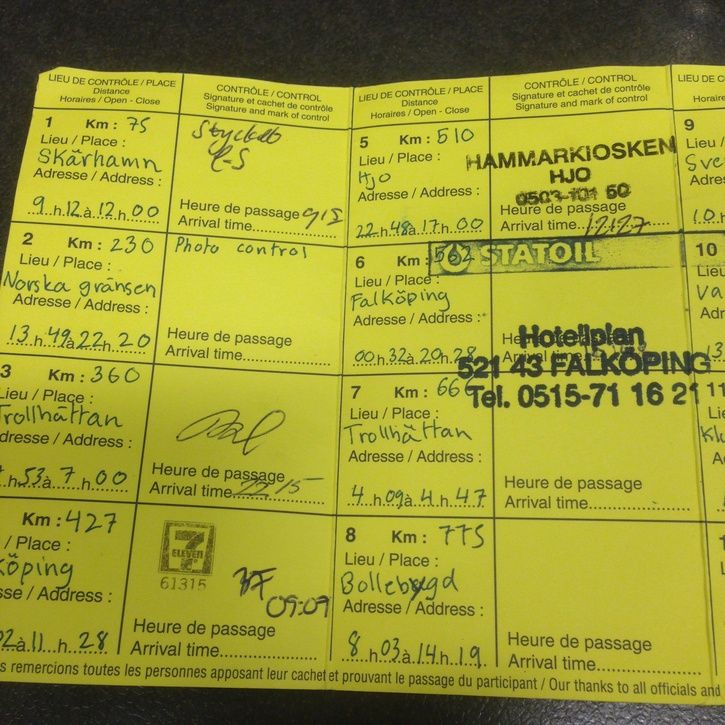 LIEU DE CONTRÔLE / PLACE
Distance
Horaires / Open - Close
CONTRÔLE / CONTROL
Signature et cachet de contrôle
Signature and mark of control
1 Km : 75
Lieu / Place :
Skärhamn
Adresse / Address :
9 h 12 à 12 h 00
Heure de passage
Arrival time
2 Km : 230
Lieu / Place :
Norska gränsen
Adresse / Address :
13 h 49 à 22 h 20
Photo control
Heure de passage
Arrival time
3 Km : 360
Lieu / Place :
Trollhättan
dresse / Address :
h 53 à 7 h 00
Heure de passage
Arrival time 22 15
Km : 427
/ Place :
köping
sse / Address :
02 à 11 h 28
7
ELEVEN
61315
09:09
Heure de passage
Arrival time
LIEU DE CONTRÔLE / PLACE
Distance
Horaires / Open - Close
CONTRÔLE / CONTROL
Signature et cachet de contrôle
Signature and mark of control
5 Km : 510
Lieu / Place :
Hjo
Adresse / Address :
22 h 48 à 17 h 00
HAMMARKIOSKEN
HJO
0503-101 50
Heure de passage
Arrival time 12:27
6 Km : 562
Lieu / Place :
Falköping
Adresse / Address :
00 h 32 à 20 h 28
STATOIL
Hotellplan
521 43 FALKÖPING
Tel. 0515-71 16 21
Heure de passage
Arrival time
7 Km : 666
Lieu / Place :
Trollhättan
Adresse / Address :
4 h 09 à 4 h 47
Heure de passage
Arrival time
8 Km : 775
Lieu / Place :
Bollebygd
Adresse / Address :
8 h 03 à 14 h 19
Heure de passage
Arrival time
LIEU DE C
Horaires
9
Lieu /
Sve
Adr
10 h
10
Lieu
Va
Adr
13
11
Lieu
Kl
A
s remercions toutes les personnes apposant leur cachet et prouvant le passage du participant / Our thanks to all officials and